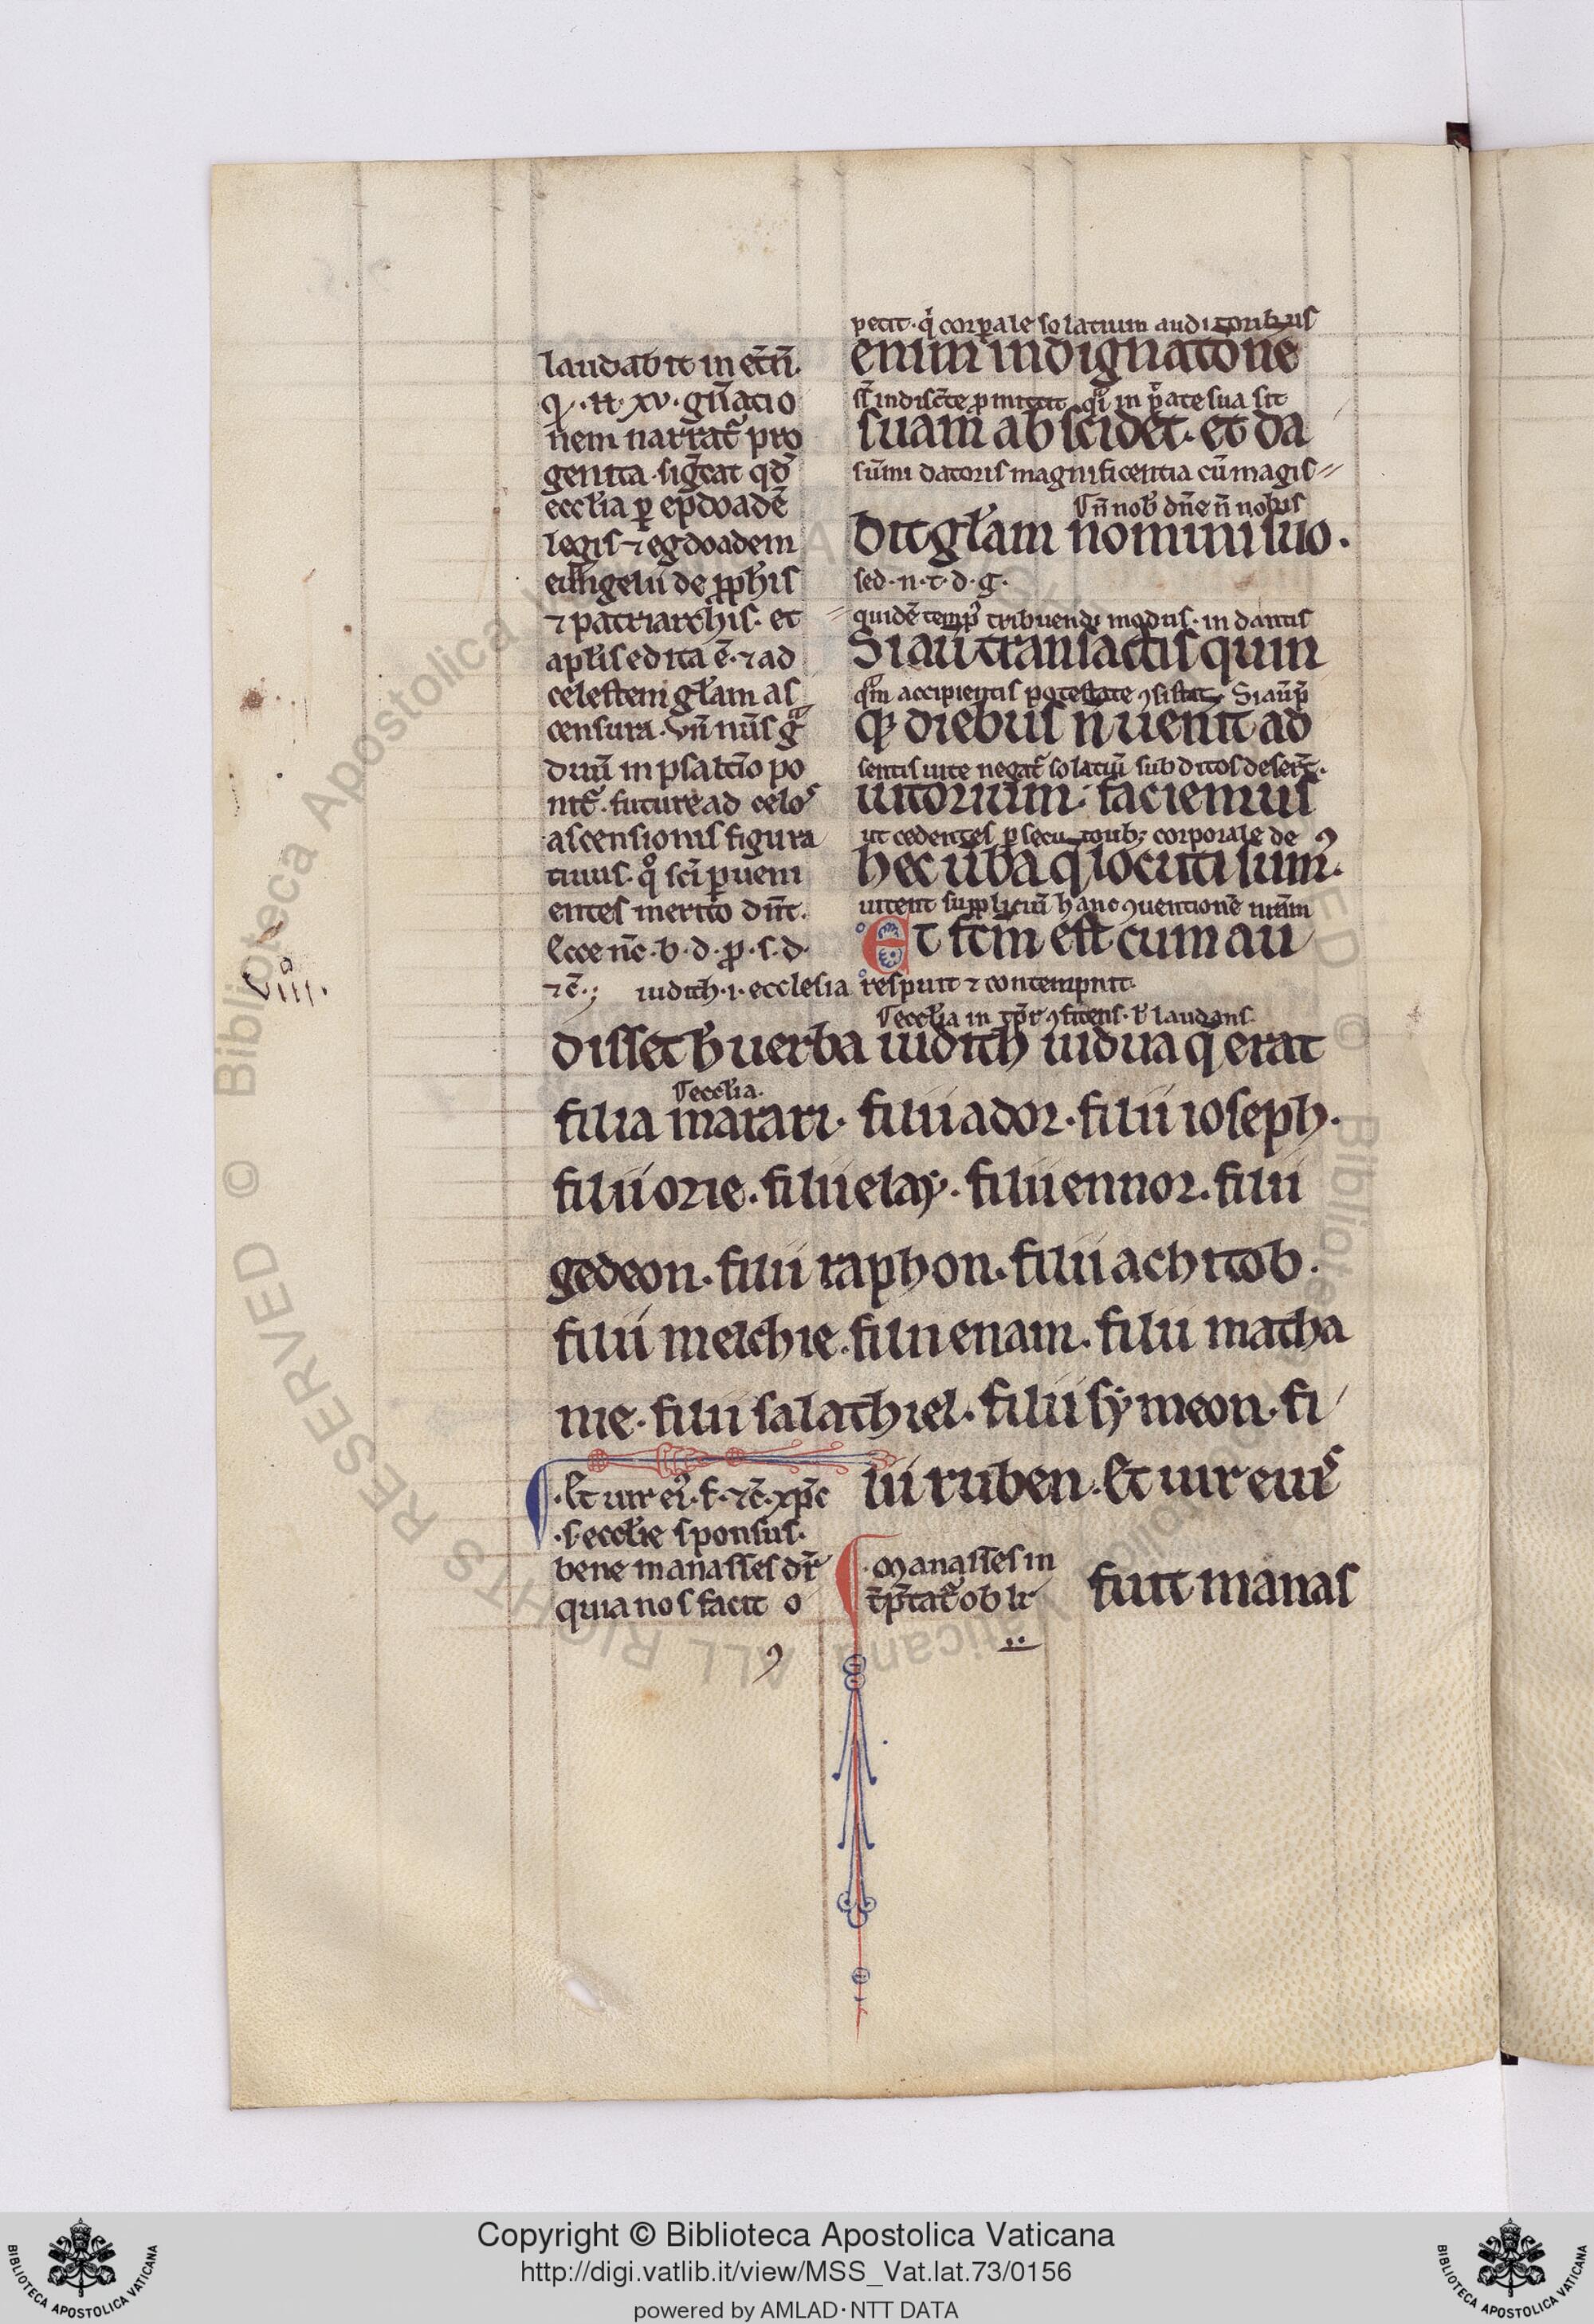 laudabit in et̄n̄.
q̨. .tt. xv. gn̄atio
nem narrat᷑ pro
genita. sig̃cat qd̃
eccl̃ia ꝑ epdoadẽ
legis ⁊ egdoadem
euãngelii de ꝓph̃is
⁊ patriarchis. et
apl̃is edita ẽ. ⁊ ad
celestem gl̃am as
censura. vñ nũs gᷓ
duũ in psalt̃io po
nit᷑. future ad celoꝝ
ascensionis figura
tiuus. qͦ sc̃i ꝑueni
entes merito dñt.
Ecce nc̃. b. d. ꝓ. s. d.
⁊c̃.;
petit. q̇ corꝑale solatium auditoribus
enim indignatone
sꝉ indisc̃te ꝓmittit qi in ꝑate sua sit
suam abscidet. et da
sũmi datoris magnificentia cũ magis
ñ nob̃ dñe ñ nobis
bit gl̃am nomini suo.
sed. n. t. d. g.
quidẽ temp᷑ tribuendi modus. in dantis
Si aũ transactis quin
qᷓm accipientis potestate ꝯsistat. Si aũ p̃
q̨ diebus ñ uenit ad
sentis uite negat᷑ solatiũ subditos deser̃t.
iutorium. faciemus
ut cedentes ꝑsecutoribꝫ corporale de
hec ũba q̃ locuti sumꝰ.
uitent suppliciũ hanc ꝯuentionẽ nr̃am
Et fc̃m est cum au
iudith .i. ecclesia respuit ⁊ contempnit.
eccl̃ia in tp̃r ꝯfitens. ł laudans.
disset h̃ uerba iudith uidua q̃ erat
eccl̃ia.
filia marari. filii ador. filii ioseph.
filii orie. filii elaẏ. filii ennor. filii
gedeon. filii raphon. filii achitob.
filii melchie. filii enam. filii matha
nie. filii salathiel. filii sẏmeon. fi
lii ruben. Et uir eiuˢ
.Et uir ei᷑. f. ⁊c̃. xp̃c
.s. eccl̃ie sponsus.
bene manasses dr̃
quia nos facit o
manasses in
t̃p̃tat᷑ obli
fuit manas
viii.
Copyright © Biblioteca Apostolica Vaticana
http://digi.vatlib.it/view/MSS_Vat.lat.73/0156
powered by AMLAD·NTT DATA
BIBLIOTECA APOSTOLICA VATICANA
BIBLIOTECA APOSTOLICA VATICANA